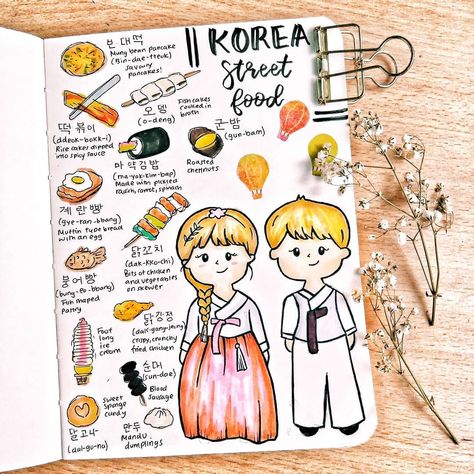 KOREA
street
food
빈대떡
Mung bean pancake
(Bin-dae-tteok)
savoury
pancakes!
떡볶이
(ddeok-bokk-i)
Rice cakes dipped
into spicy sauce
오뎅
(o-deng)
Fish cakes
cooked in
broth
군밤
(gun-bam)
Roasted
chestnuts
마약김밥
(ma-yak-kim-bap)
Made with pickled
radish, carrot, spinach
계란빵
(gye-ran-bbang)
Muffin type bread
with an egg
닭꼬치
(dak-kko-chi)
Bits of chicken
and vegetables
on skewer
붕어빵
(bung-eo-bbang)
Fish shaped
Pastry
Foot
long
ice
cream
닭강정
(dak-gang-jeong)
crispy, crunchy
fried chicken
순대
(sun-dae)
Blood
sausage
sweet
sponge
candy
달고나
(dal-go-na)
만두
Mandu
dumplings